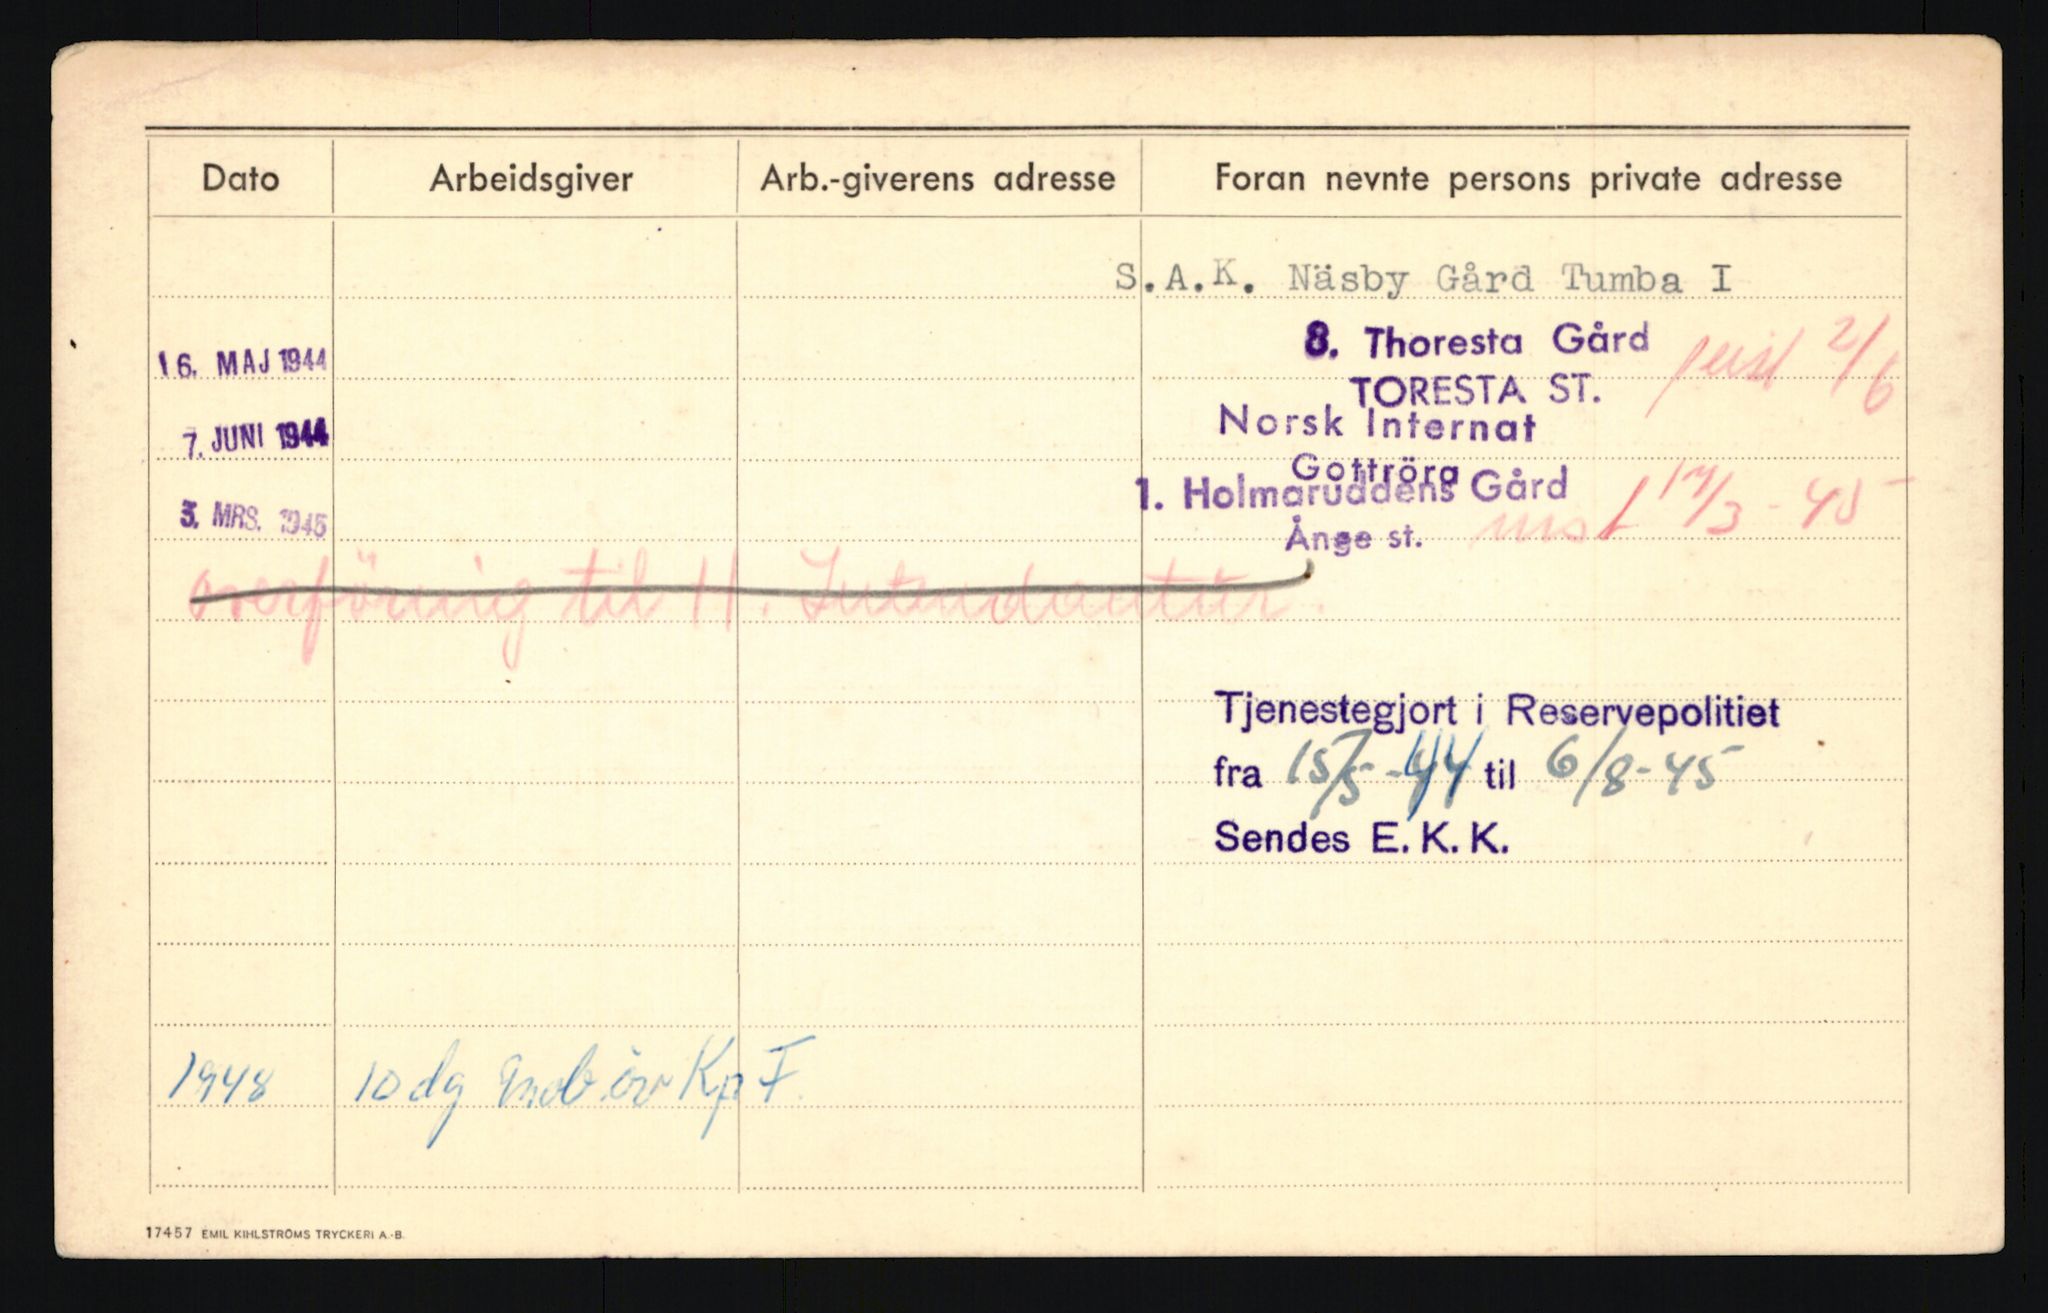 Dato Arbeidsgiver Arb.-giverens adresse Foran nevnte persons private adresse
S.A.K. Näsby Gård Tumba I
16. MAJ 1944 8. Thoresta Gård perm 2/6
TORESTA ST.
7. JUNI 1944 Norsk Internat
Gottröra
3. MRS. 1945 1. Holmaruddens Gård inst 17/3-45
Ånge st.
overföring til H. Intendantur.
Tjenestegjort i Reservepolitiet
fra 15/5-44 til 6/8-45
Sendes E.K.K.
1948 10 dg mob.öv Kp F.
17457 EMIL KIHLSTRÖMS TRYCKERI A.-B.